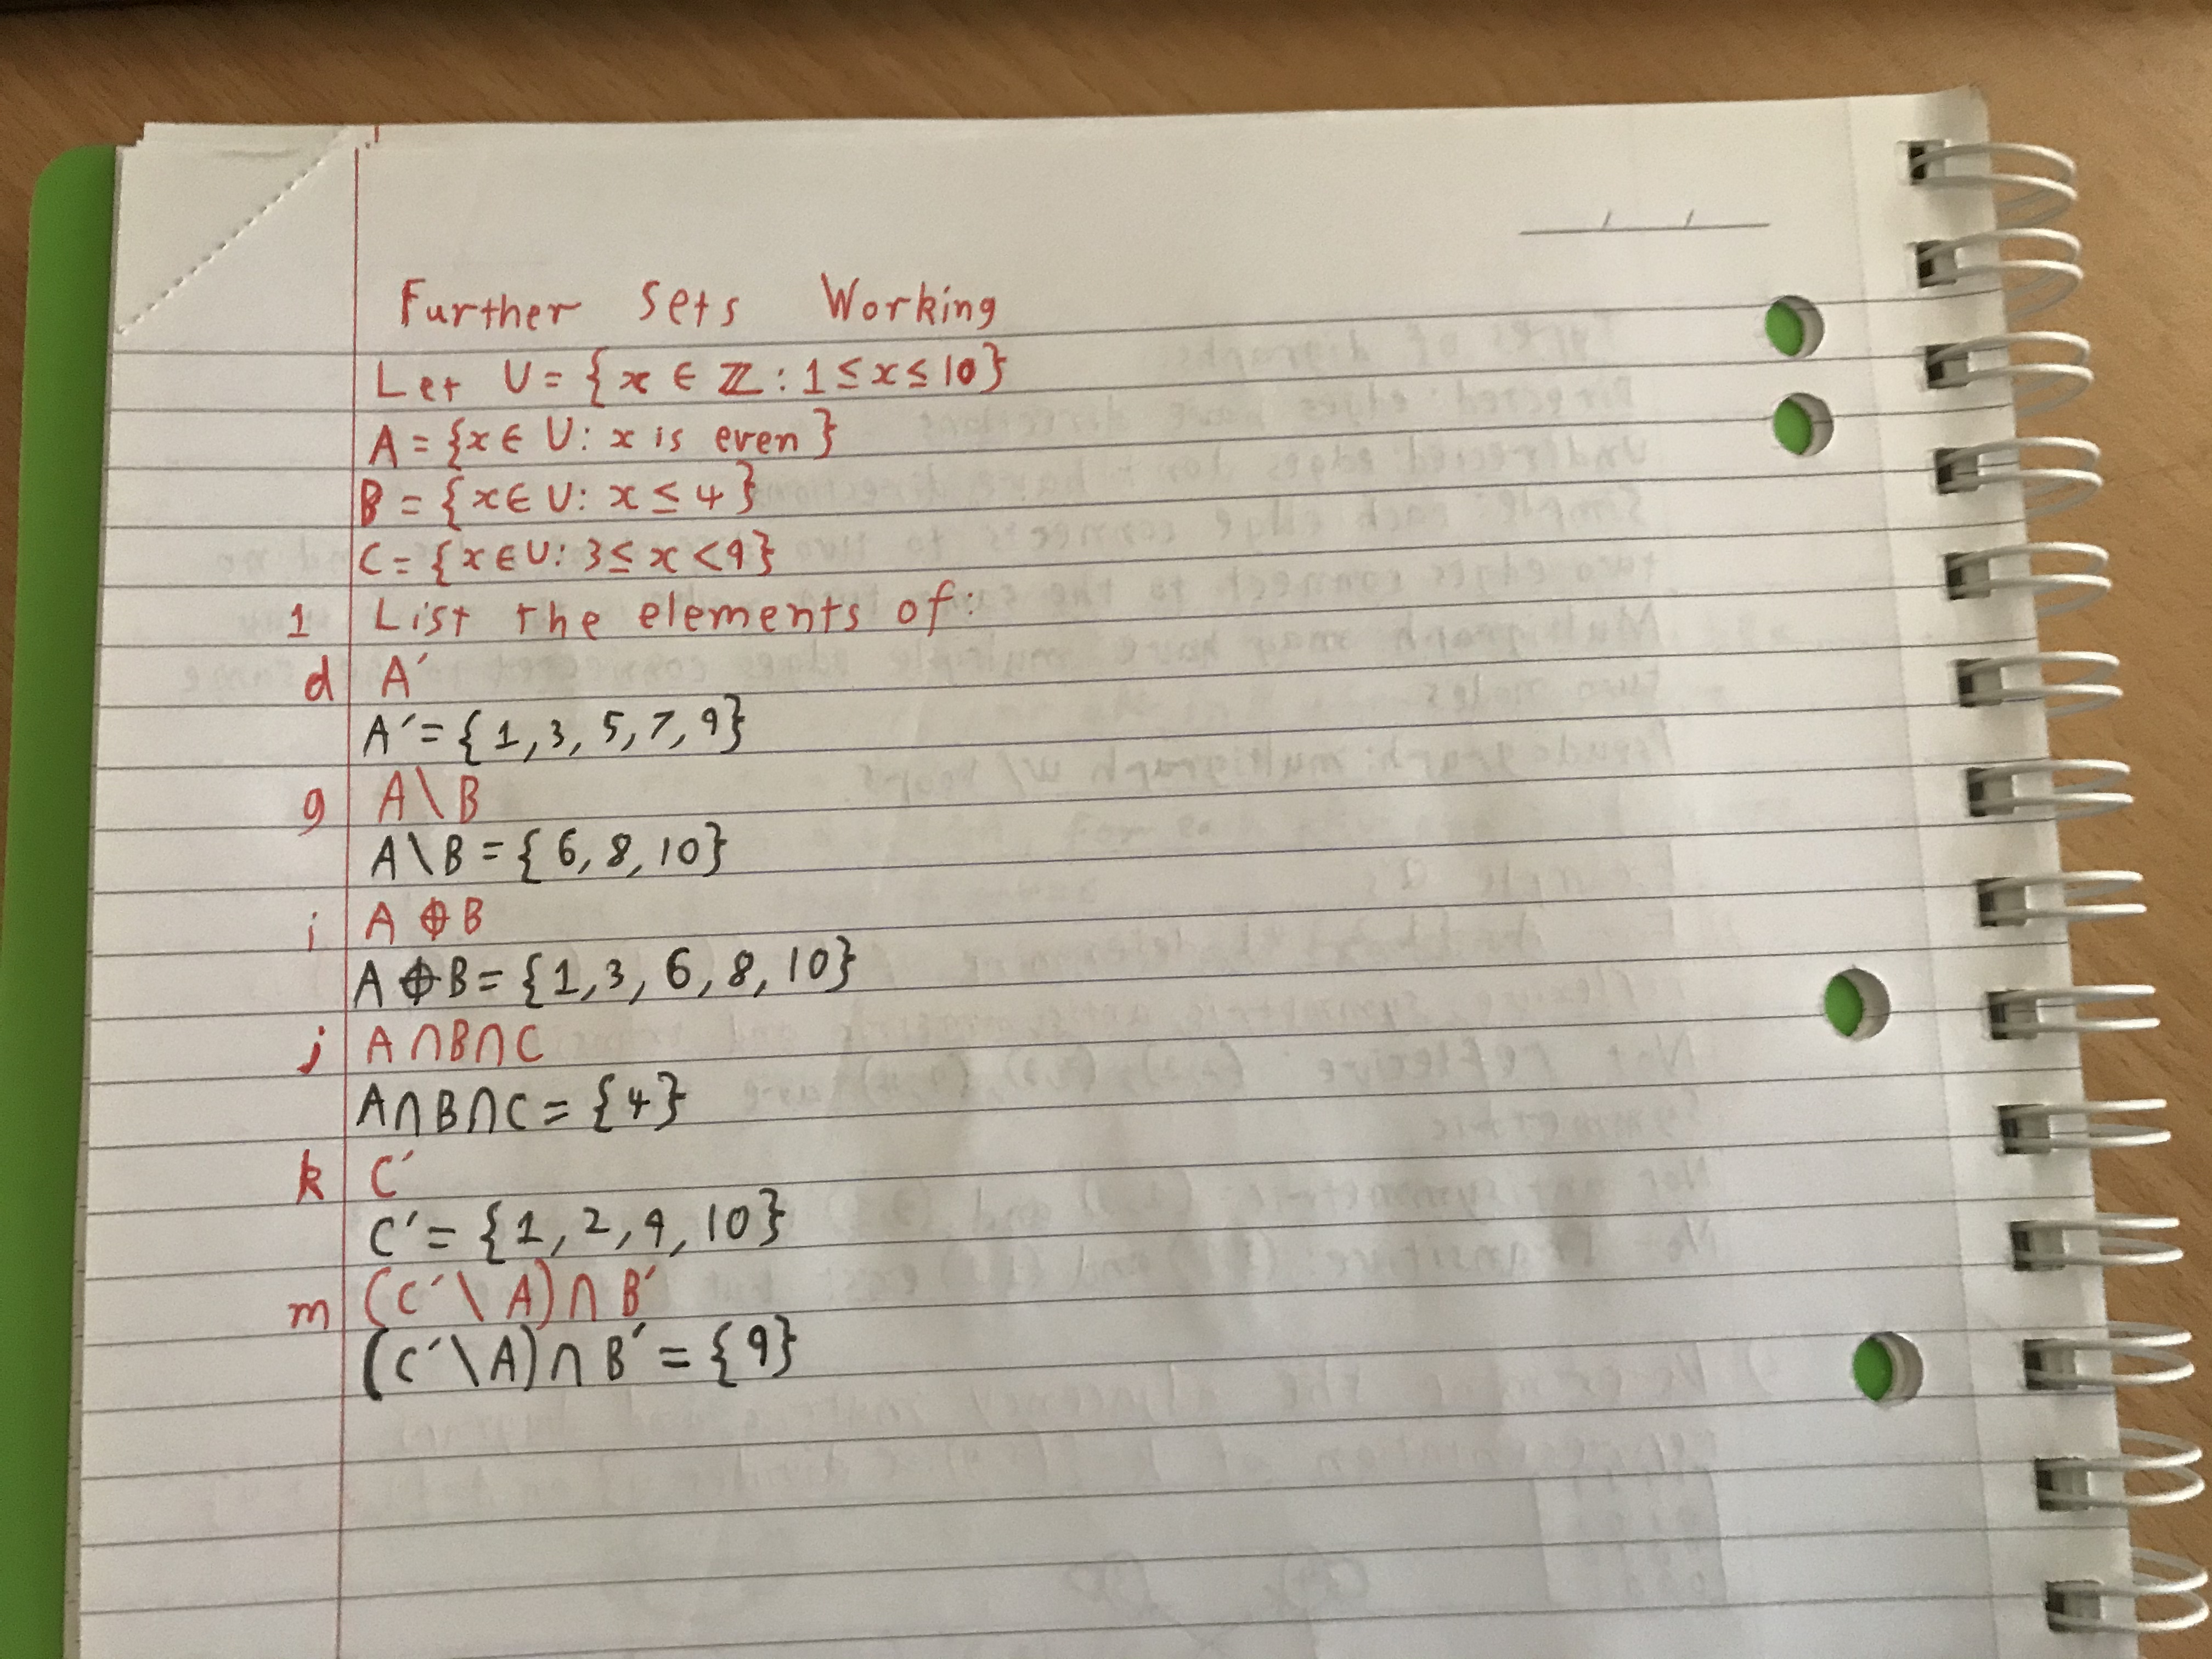 Further Sets Working
Let U = {x ∈ ℤ : 1 ≤ x ≤ 10}
A = {x ∈ U : x is even}
B = {x ∈ U : x ≤ 4}
C = {x ∈ U : 3 ≤ x < 9}
1 List the elements of:
d A′
A′ = {1, 3, 5, 7, 9}
g A \ B
A \ B = {6, 8, 10}
i A ⊕ B
A ⊕ B = {1, 3, 6, 8, 10}
j A ∩ B ∩ C
A ∩ B ∩ C = {4}
k C′
C′ = {1, 2, 9, 10}
m (C′ \ A) ∩ B′
(C′ \ A) ∩ B′ = {9}